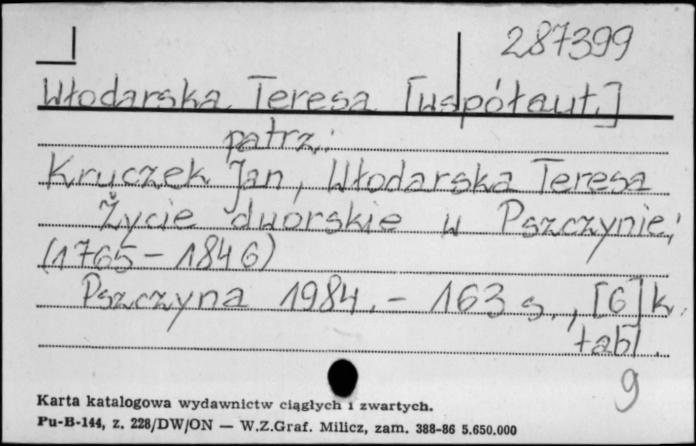 287399
Włodarska Teresa [współaut.]
patrz:
Kruczek Jan, Włodarska Teresa
Życie dworskie w Pszczynie
(1765-1846)
Pszczyna 1984. - 163 s., [6] k.
tabl.
9
Karta katalogowa wydawnictw ciągłych i zwartych.
Pu-B-144, z. 228/DW/ON — W.Z.Graf. Milicz, zam. 388-86 5.650.000